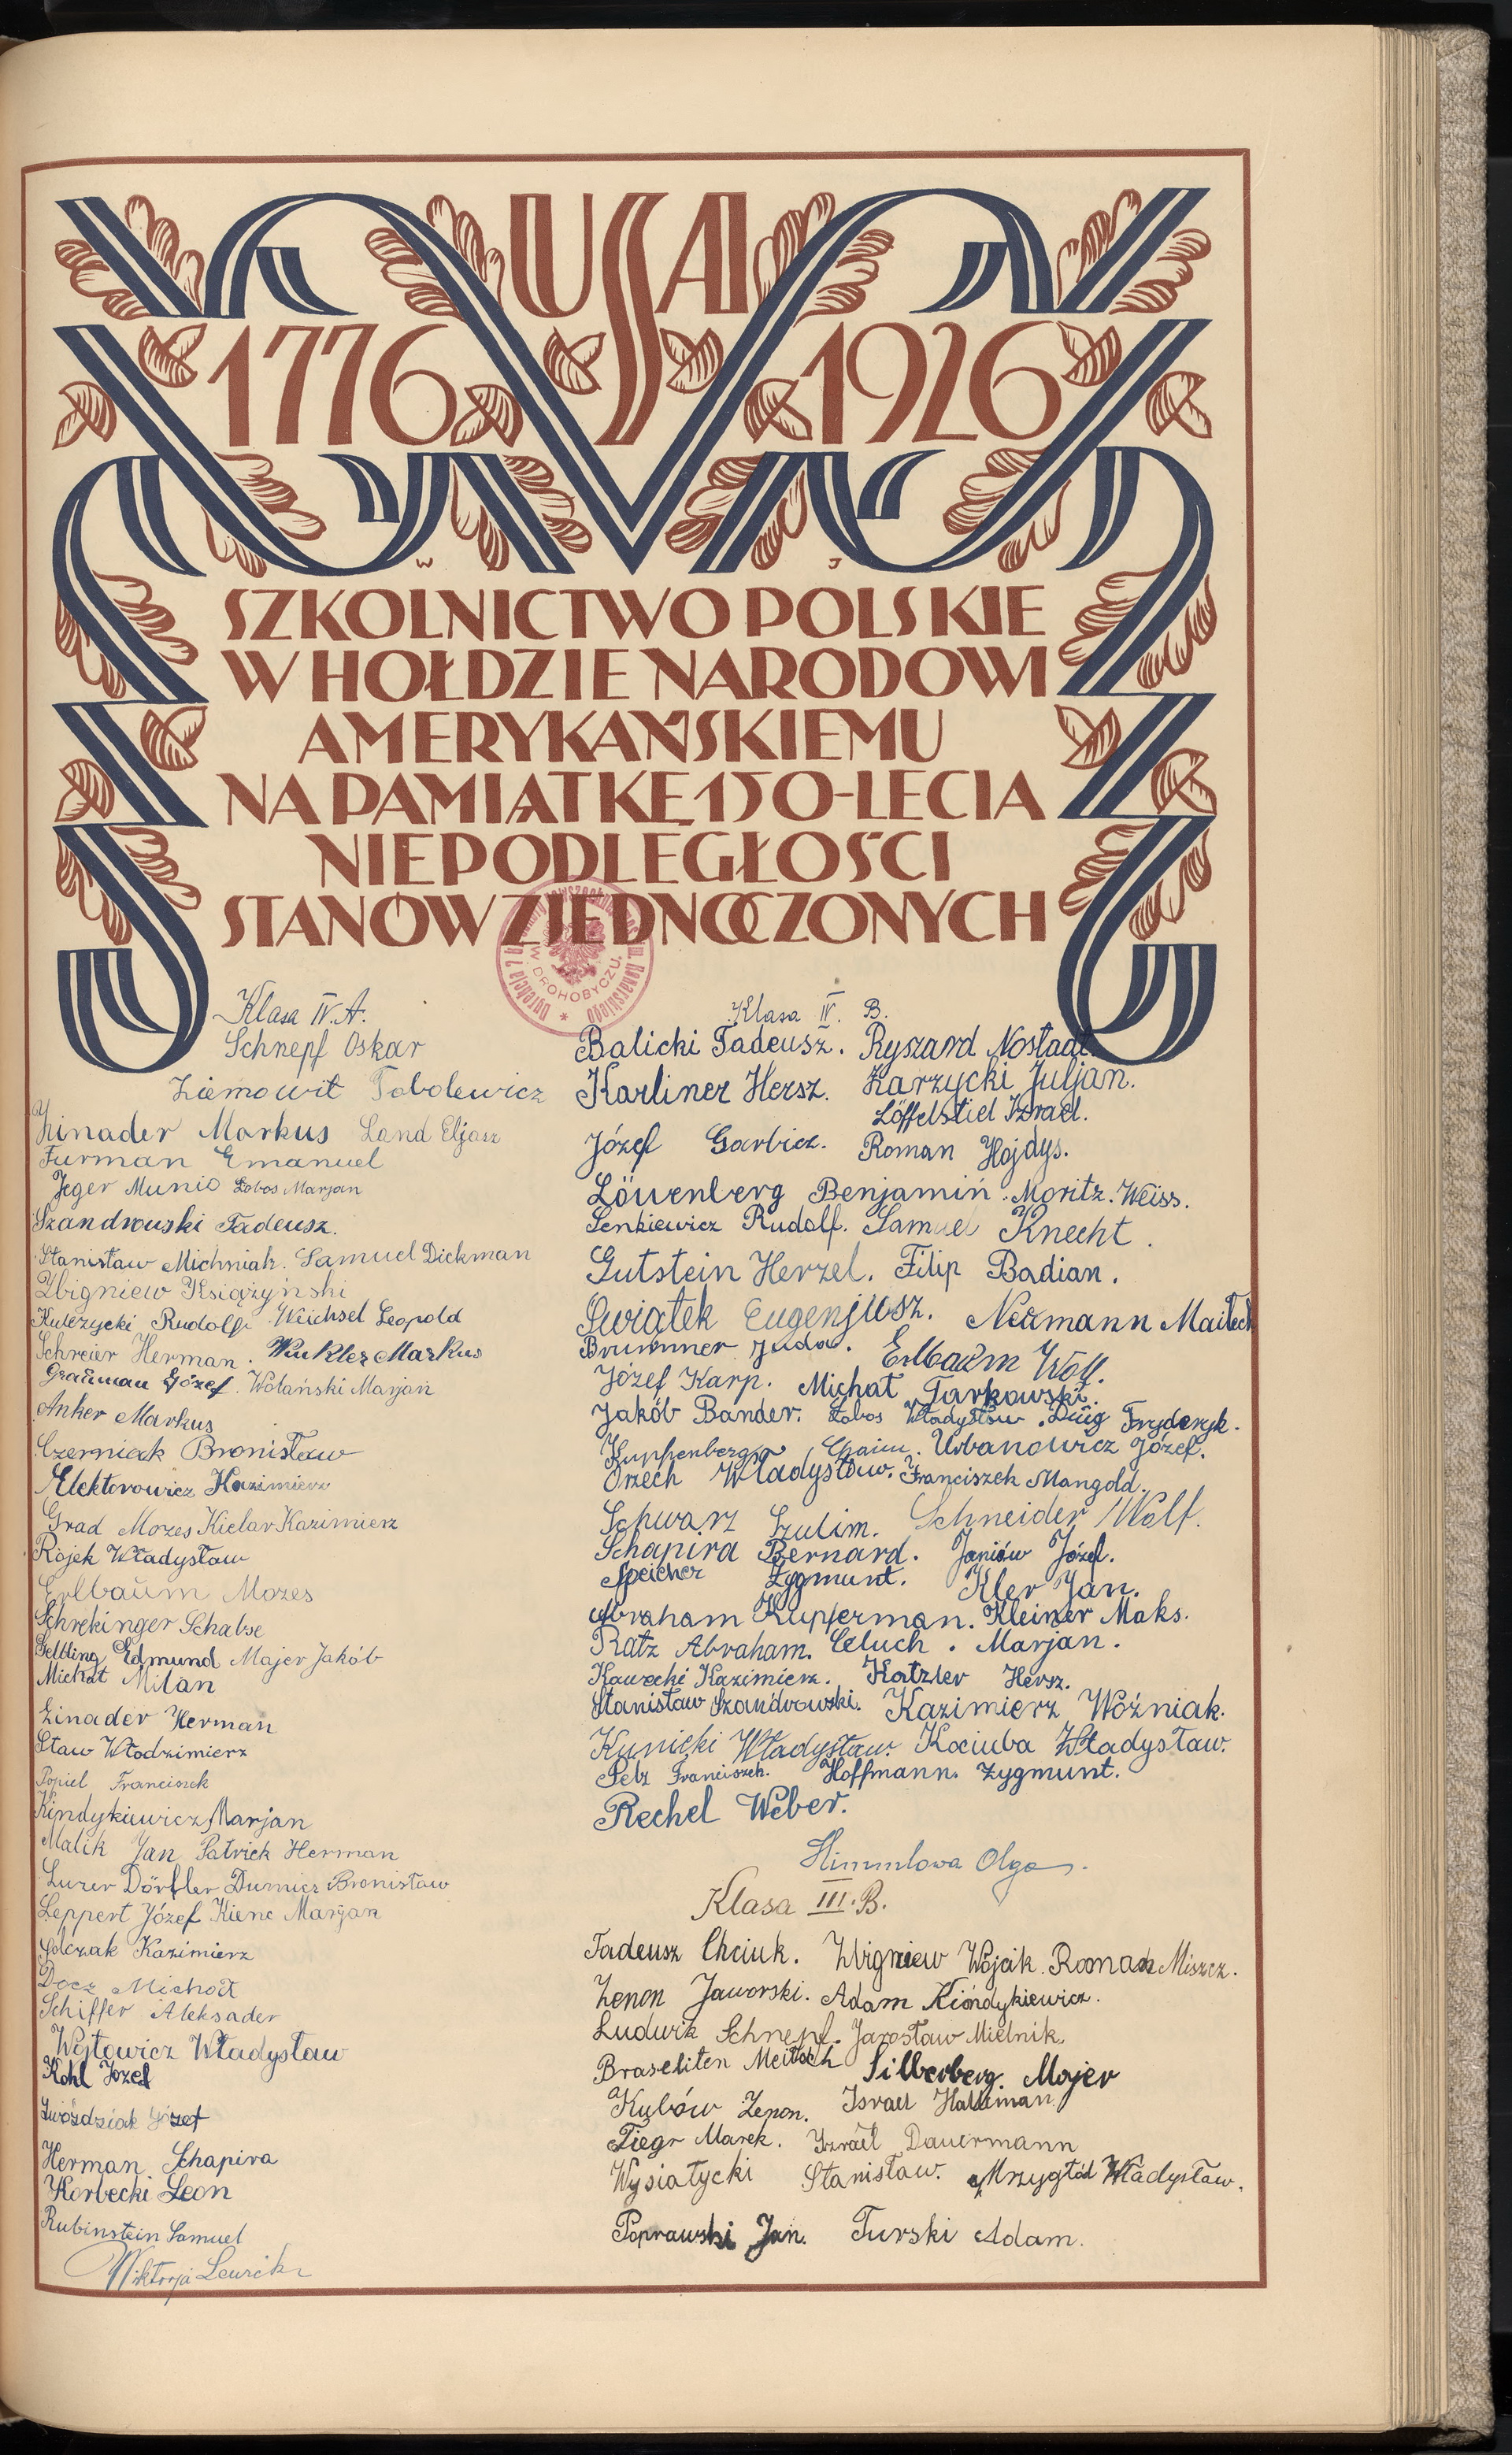 USA
1776 1926
W J
SZKOLNICTWO POLSKIE
W HOŁDZIE NARODOWI
AMERYKAŃSKIEMU
NA PAMIĄTKĘ 150-LECIA
NIEPODLEGŁOŚCI
STANÓW ZJEDNOCZONYCH
W DROHOBYCZU.
Klasa IV. A.
Schnepf Oskar
Ziemowit Tobolewicz
Zinader Markus Land Eljasz
Furman Emanuel
Jeger Munio Łobos Marjan
Szandrowski Tadeusz.
Stanisław Michniak. Samuel Dickman
Zbigniew Książyński
Kulczycki Rudolf Weichsel Leopold
Schreier Herman. Winkler Markus
Grauman Józef. Wolański Marjan
Anker Markus
Czerniak Bronisław
Elektorowicz Kazimierz
Grad Mozes Kielar Kazimierz
Rojek Władysław
Erlbaum Mozes
Schrekinger Schabse
Edmund Majer Jakób
Michał Milan
Zinader Herman
Staw Włodzimierz
Popiel Franciszek
Kindykiewicz Marjan
Malik Jan Patrick Herman
Luzer Dörfler Durnicz Bronisław
Leppert Józef Kiene Marjan
Solczak Kazimierz
Docz Michał
Schiffer Aleksader
Wojtowicz Władysław
Kohl Józef
Gwoździak Józef
Herman Schapira
Korbecki Leon
Rubinstein Samuel
Wiktorja
Klasa IV. B.
Balicki Tadeusz. Ryszard Nostadt.
Karliner Hersz. Karzycki Juljan.
Löffelstiel Izrael.
Józef Garbicz. Roman Hojdys.
Löwenberg Benjamin. Moritz. Weiss.
Senkiewicz Rudolf. Samuel Knecht.
Gutstein Herzel. Filip Badian.
Swiątek Eugenjusz. Neumann Maitech
Brummer Juda. Erlbaum Wolf.
Józef Karp. Michał Tarkowski.
Jakób Bander. Łobos Władysław. Dług Fryderyk.
Kuppenberg Chaim. Urbanowicz Józef.
Orzech Władysław. Franciszek Mangold.
Schwarz Szulim. Schneider Wolf.
Schapira Bernard. Janiów Józef.
Speicher Zygmunt. Kler Jan.
Abraham Kupferman. Kleiner Maks.
Ratz Abraham. Celuch. Marjan.
Kawecki Kazimierz. Katzler Hersz.
Stanisław Szandrowski. Kazimierz Woźniak.
Kunicki Władysław. Kociuba Władysław.
Pelz Franciszek. Hoffmann. Zygmunt.
Rechel Weber.
Himmlowa Olga.
Klasa III. B.
Tadeusz Chciuk. Zbigniew Wójcik. Roman Miszcz.
Zenon Jaworski. Adam Kiondykiewicz.
Ludwik Schnepf. Jarosław Mielnik.
Braseliten Meitsch Silberberg. Majer
Kubów Zenon. Israel Halteman.
Tiegr Marek. Izrael Dauermann
Wysiatycki Stanisław. Mrzygłód Władysław.
Poprawski Jan. Turski Adam.